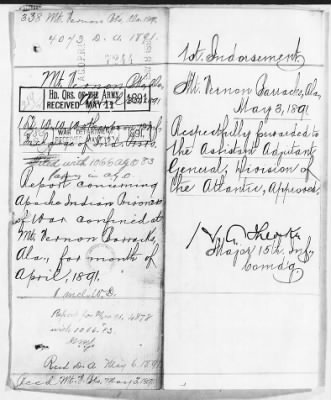 338 Mt. Vernon Bks. Ala. 1891.
4073 D. A. 1891.
7244
Mt. Vernon Bks. Ala.
HD. QRS. OF THE ARMY
RECEIVED MAY 11 1891
1891
WAR DEPARTMENT
RECEIVED
Filed with 1066 A.G.O. 83
Report concerning
Apache Indian Prisoners
of War confined at
Mt. Vernon Barracks,
Ala., for month of
April, 1891.
1 incl.
Report for 91, 4878
with 1066. 83.
Recd. D. A. May 6. 1891
Recd Mt. V. Bks. May 3, 1891
1st. Indorsement
Mt. Vernon Barracks, Ala,
May 3, 1891
Respectfully forwarded to
the Assistant Adjutant
General, Division of
the Atlantic, Approved.
Major 15th. Inf.,
Comdg